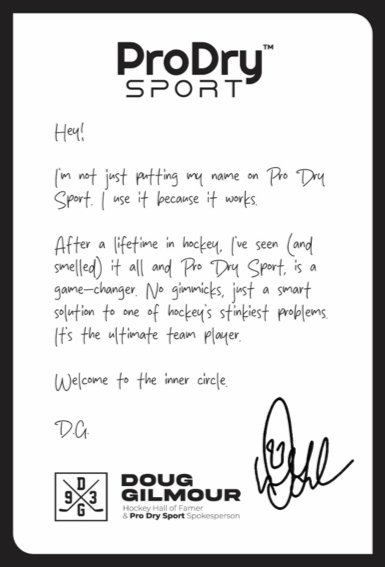 ProDry™
SPORT
Hey!
I'm not just putting my name on Pro Dry
Sport. I use it because it works.
After a lifetime in hockey, I've seen (and
smelled) it all and Pro Dry Sport, is a
game-changer. No gimmicks, just a smart
solution to one of hockey's stinkiest problems.
It's the ultimate team player.
Welcome to the inner circle.
D.G.
D
9 3
G
DOUG
GILMOUR
Hockey Hall of Famer
& Pro Dry Sport Spokesperson